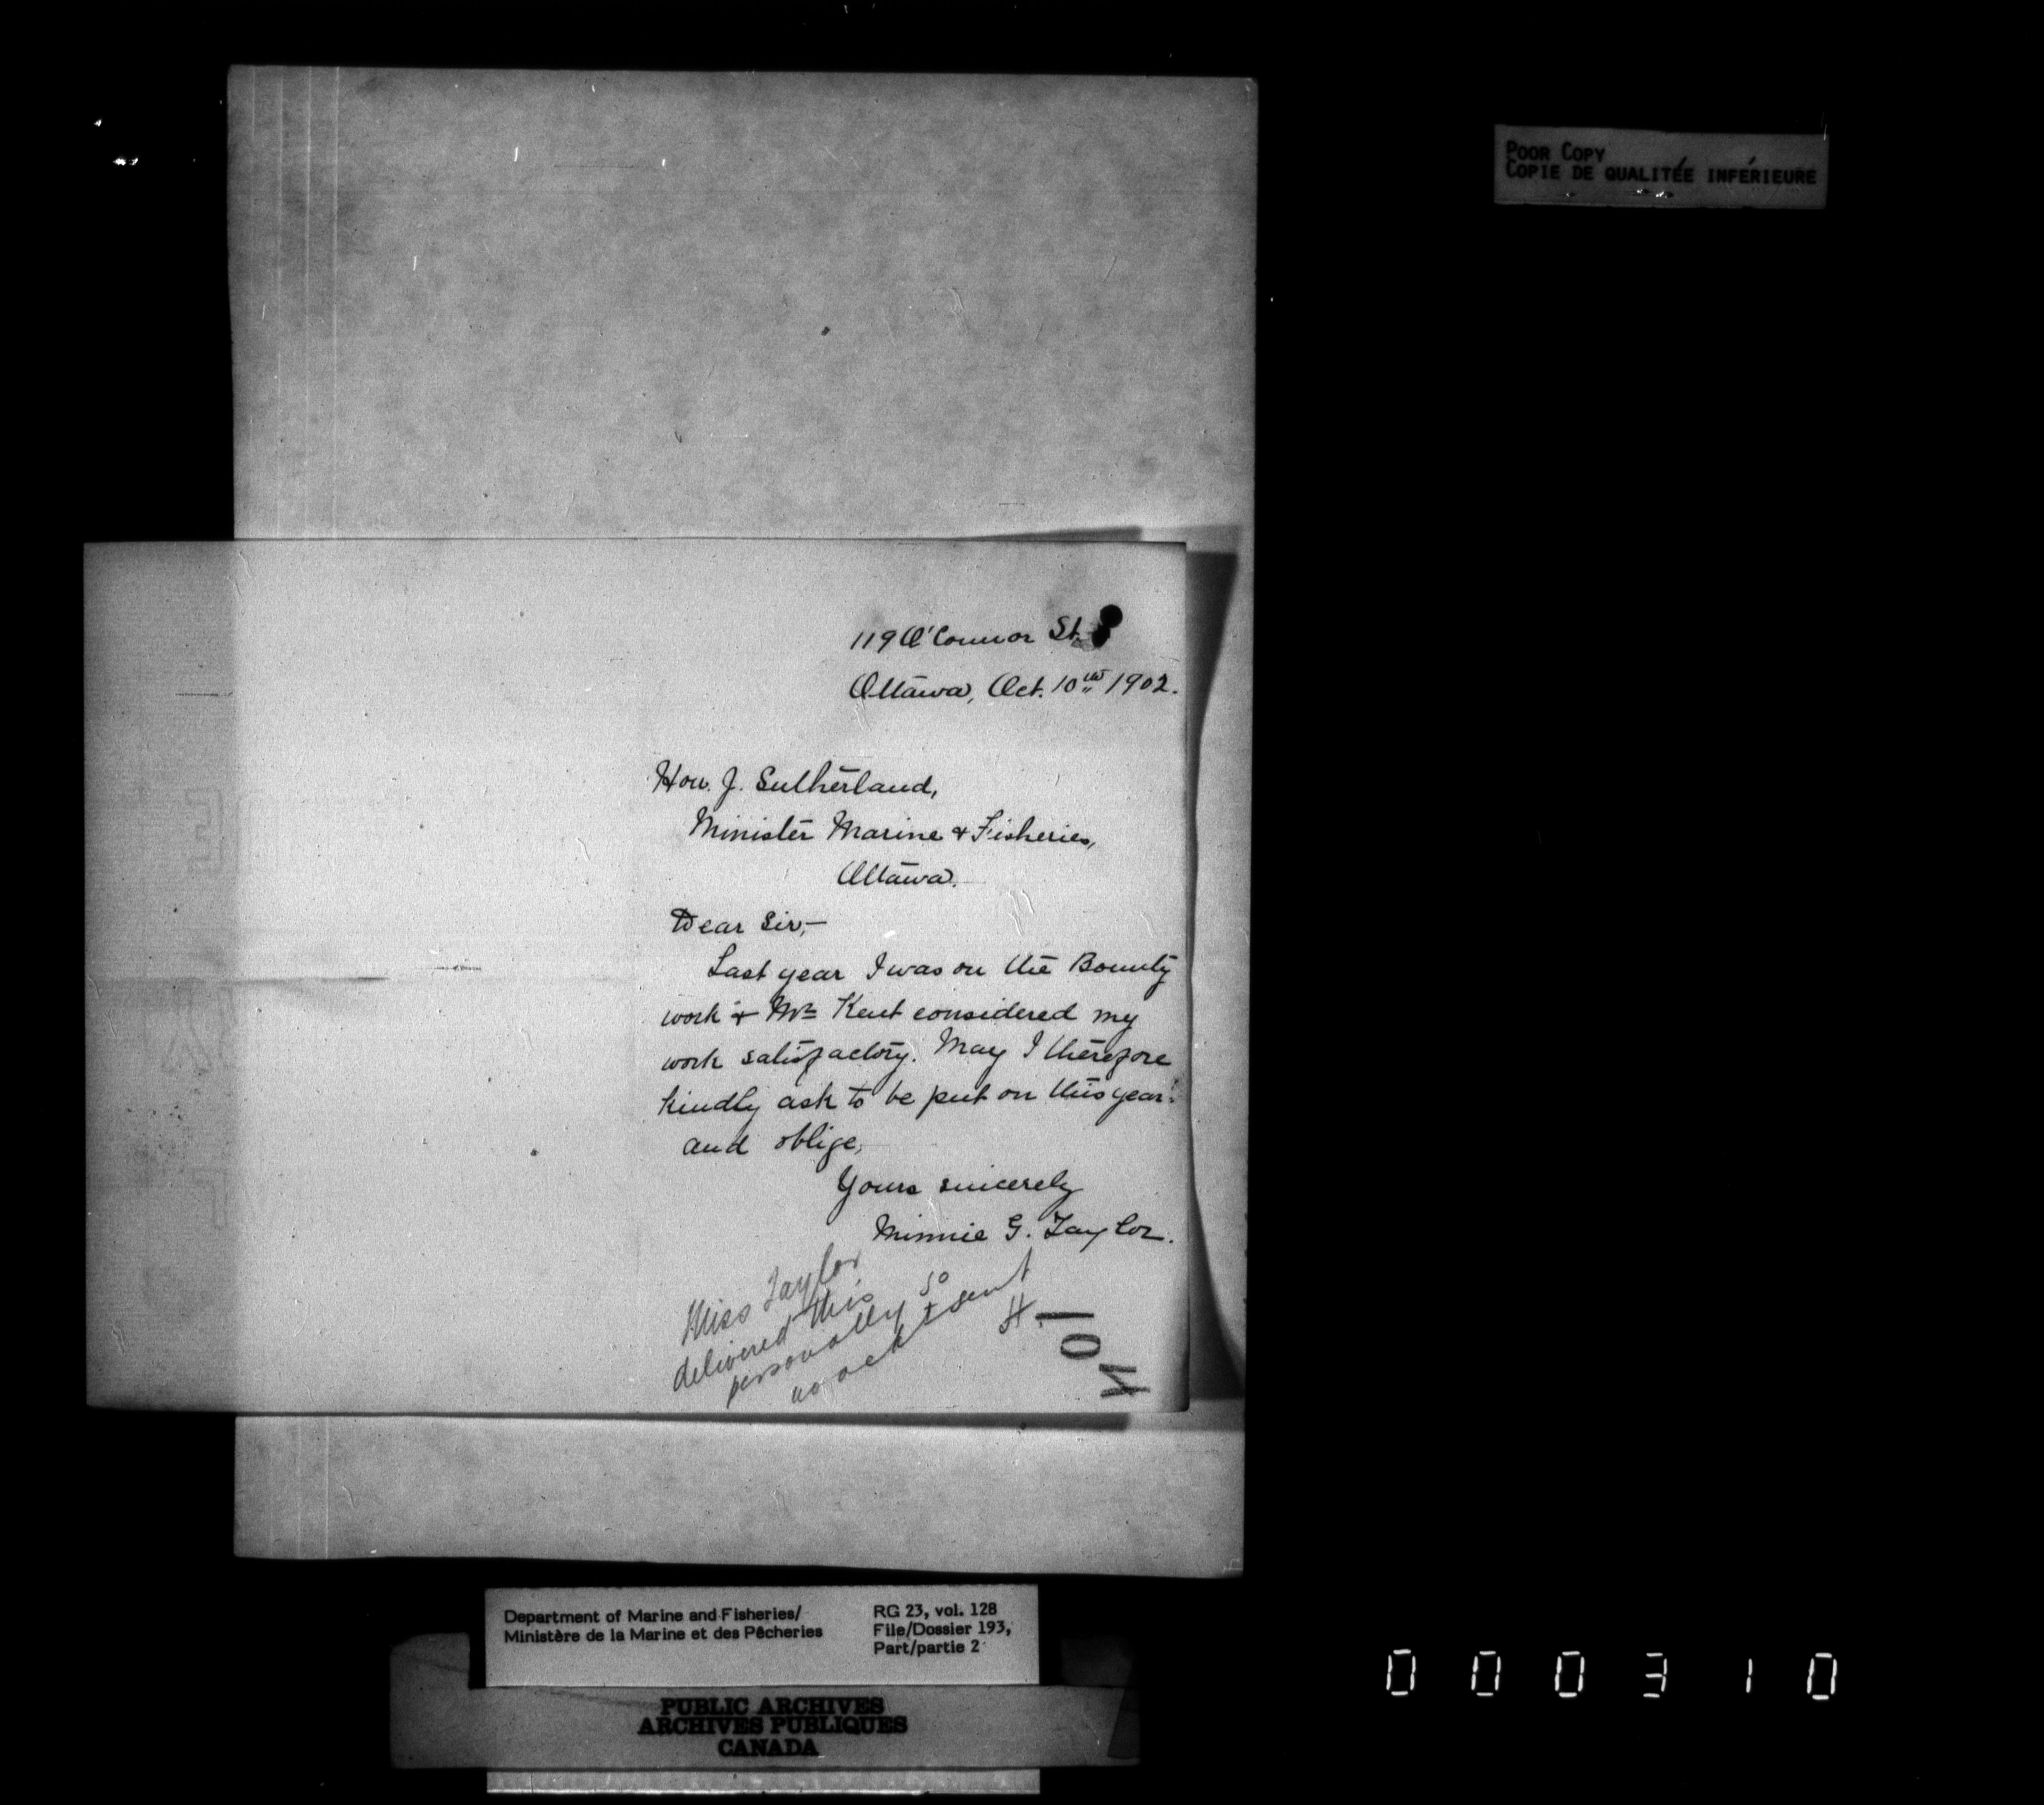 POOR COPY
COPIE DE QUALITÉE INFÉRIEURE
119 O'Connor St.
Ottawa, Oct. 10th 1902.
Hon. J. Sutherland,
Minister Marine & Fisheries,
Ottawa.
Dear Sir,—
Last year I was on the Bounty
work & Mr Kent considered my
work satisfactory. May I therefore
kindly ask to be put on this year?
and oblige,
Yours sincerely
Minnie G. Taylor.
Miss Taylor
delivered this
personally so
no ack't sent
H.
101
Department of Marine and Fisheries/
Ministère de la Marine et des Pêcheries
RG 23, vol. 128
File/Dossier 193,
Part/partie 2
PUBLIC ARCHIVES
ARCHIVES PUBLIQUES
CANADA
000310